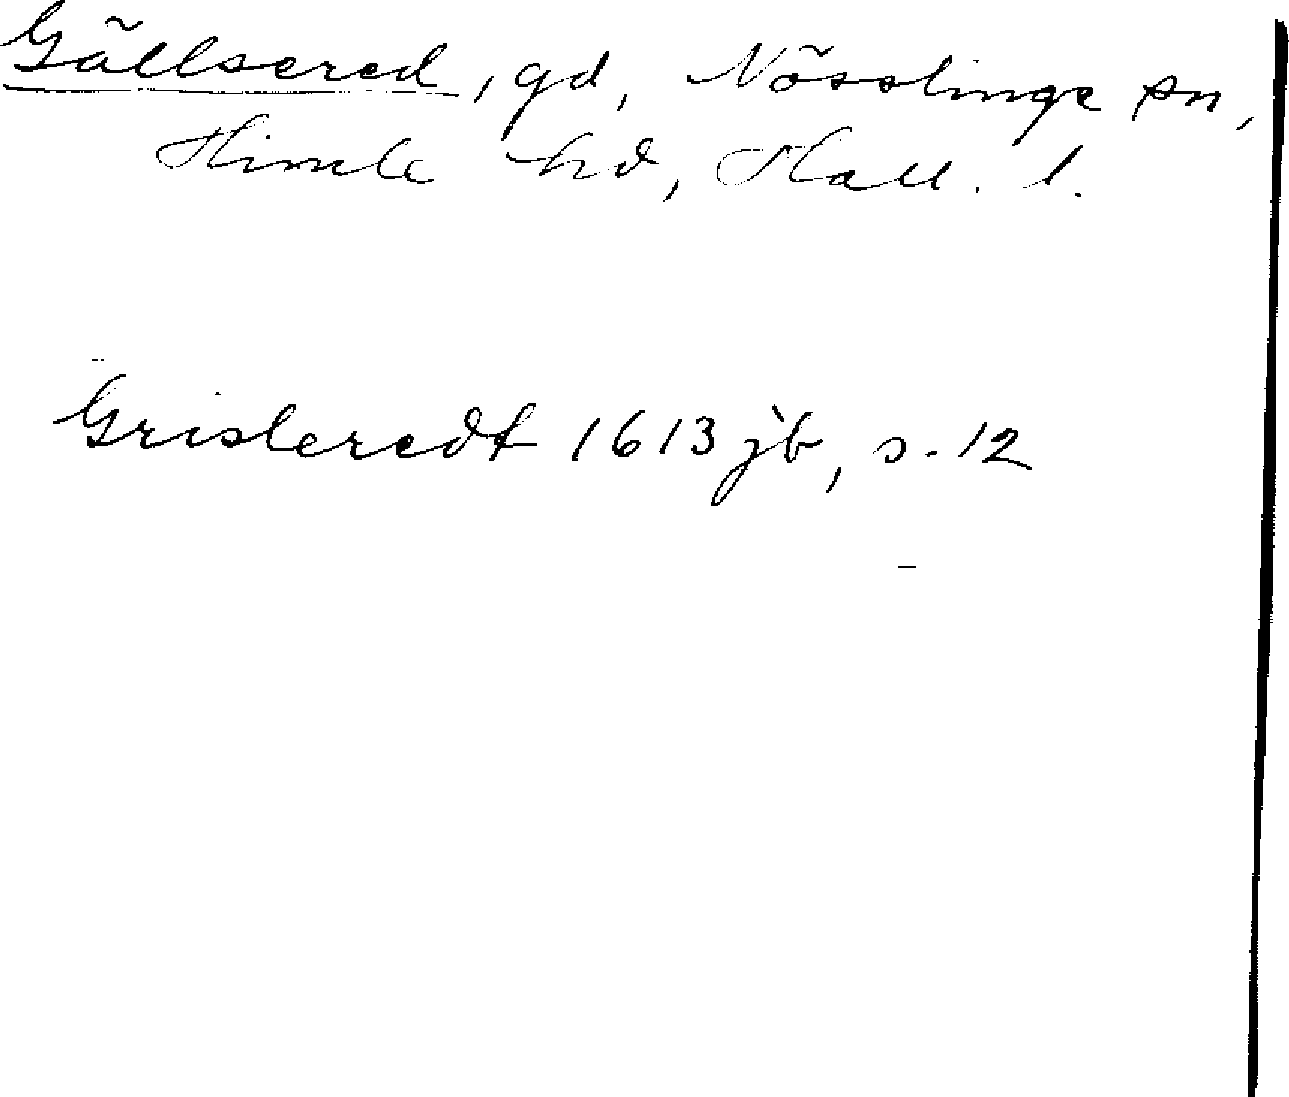 Gällsered, gd, Nösslinge sn,
Himle hd, Hall. l.
Grisleredt 1613 jb, s. 12